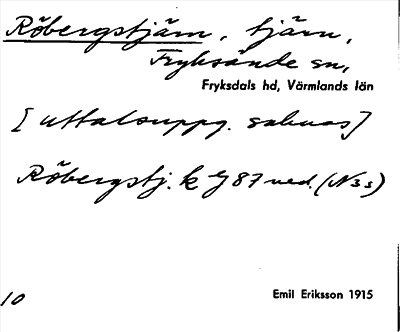 Röbergstjärn, tjärn,
Fryksände sn,
Fryksdals hd, Värmlands län
[uttalsuppg. saknas]
Röbergstj. k 87 ned. (N3s)
10
Emil Eriksson 1915